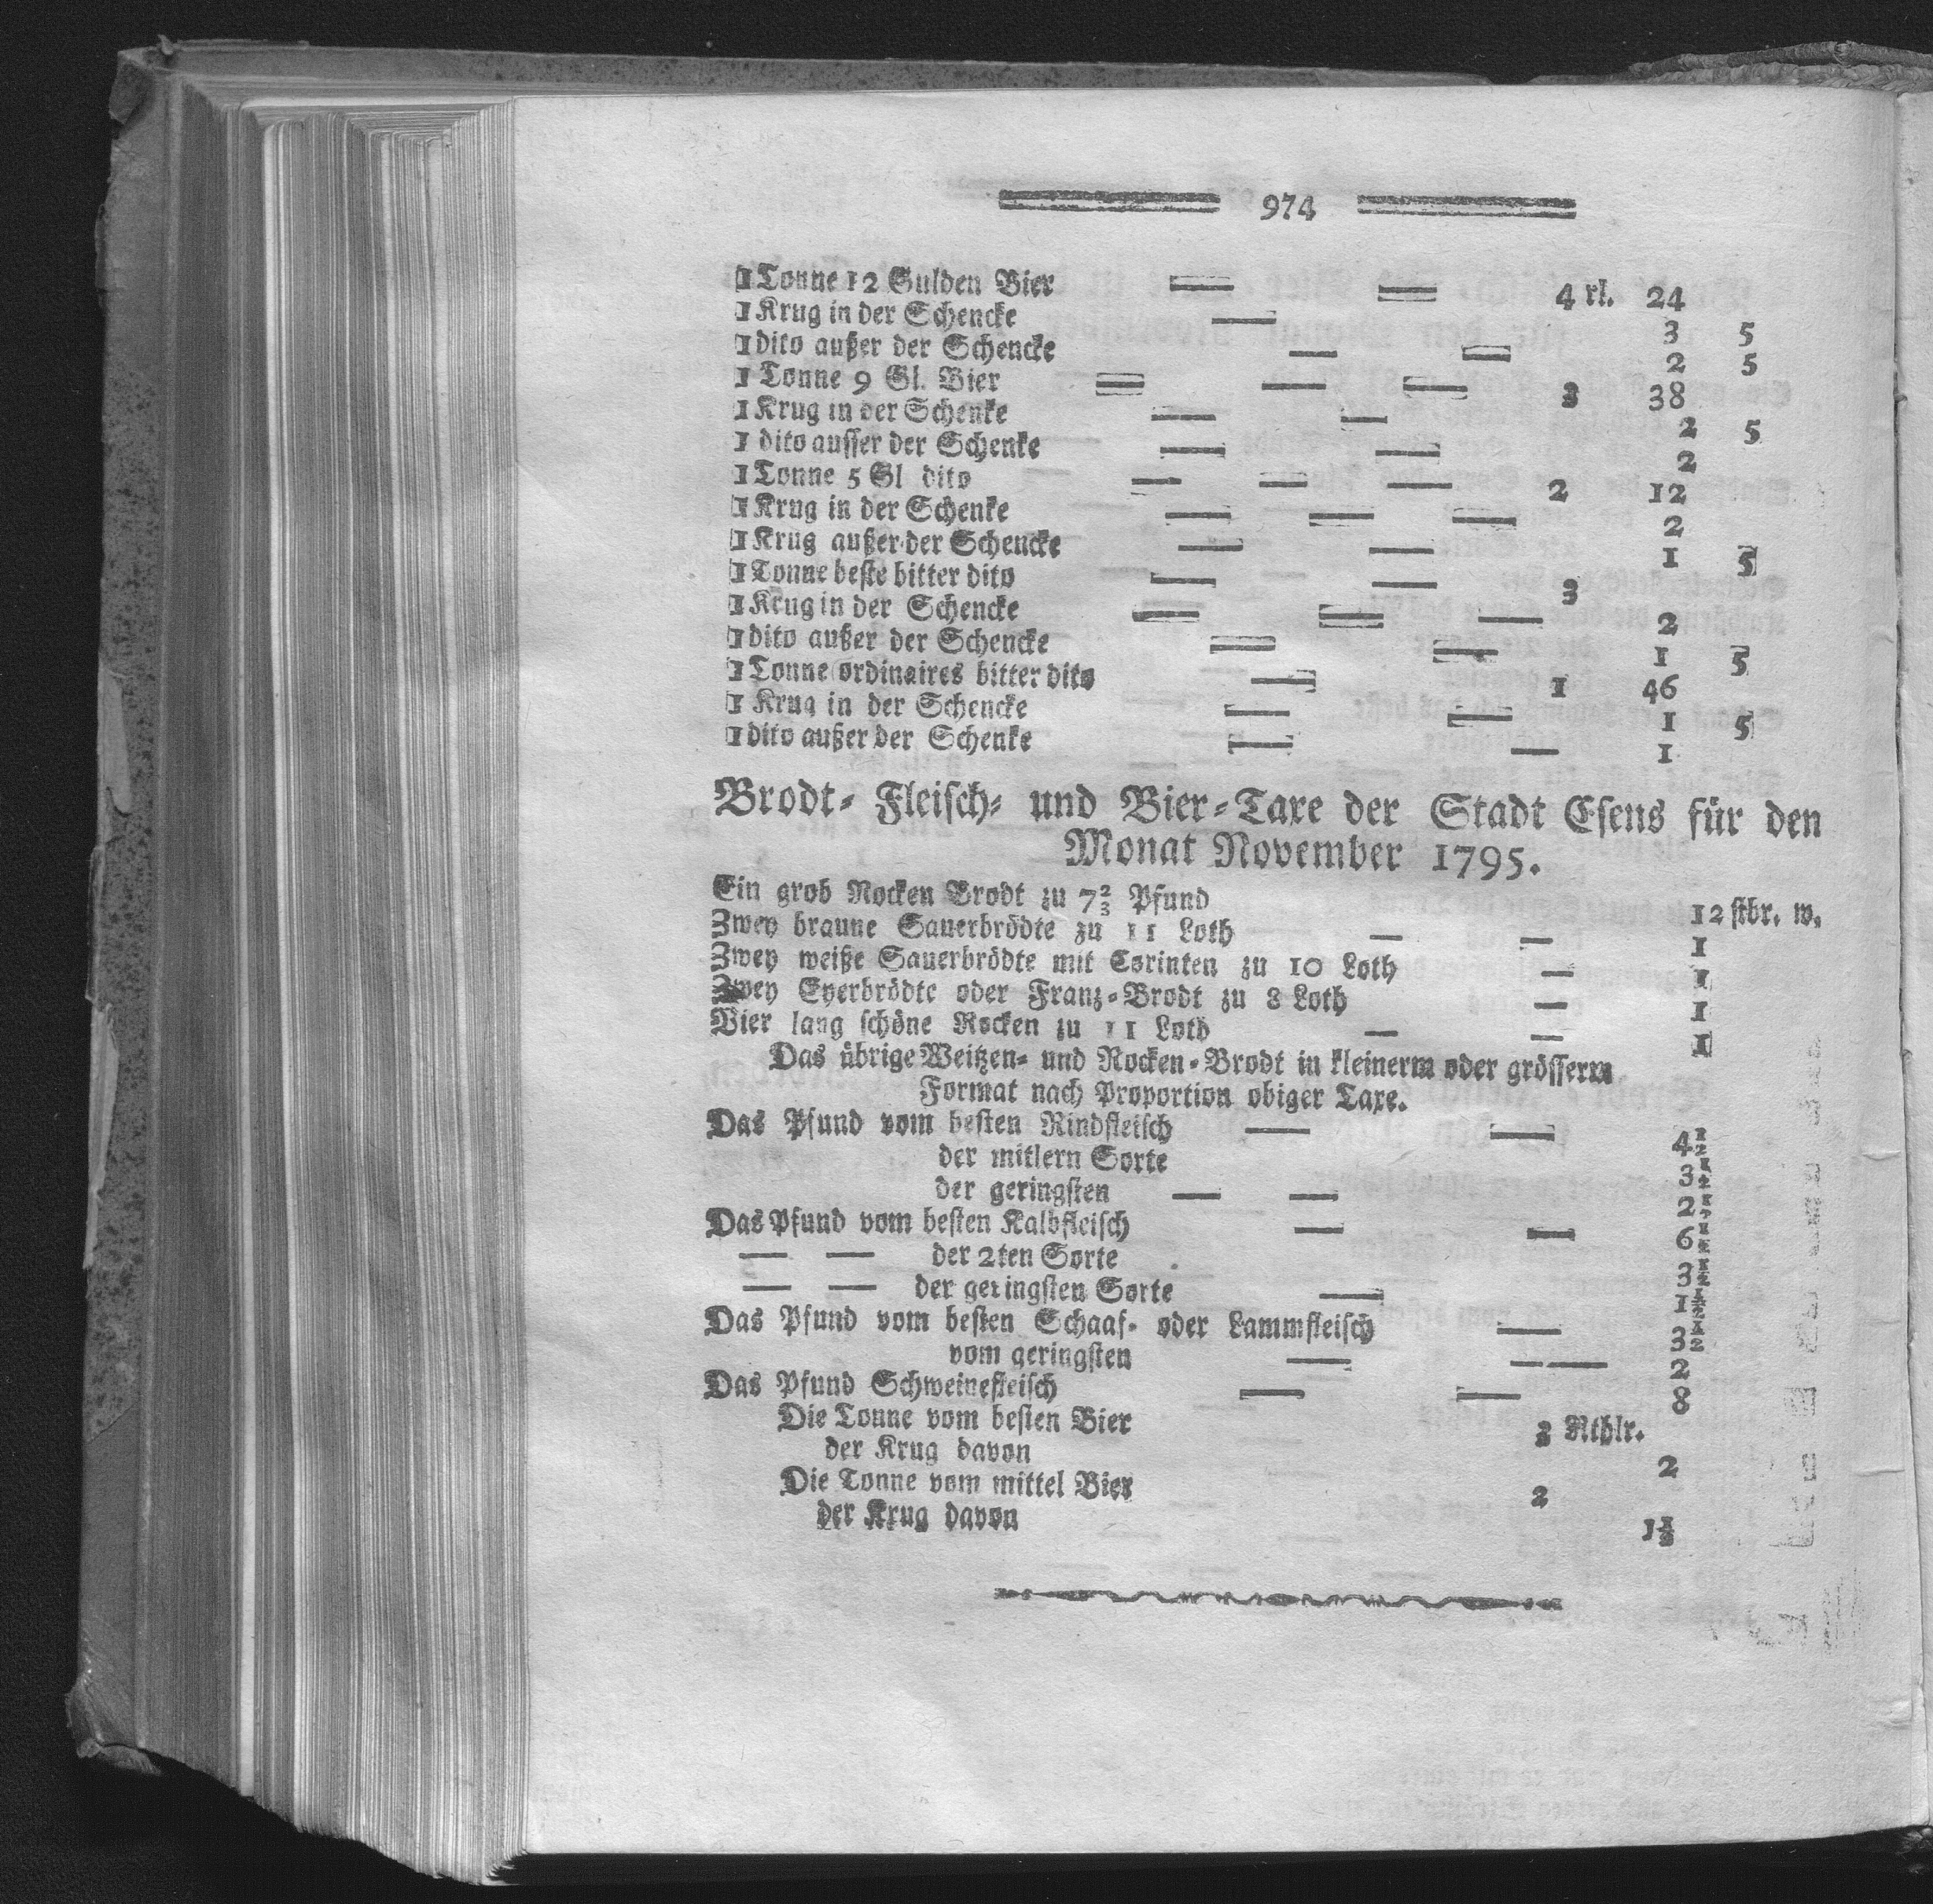 974
1 Tonne 12 Gulden Bier — — 4 rl. 24
1 Krug in der Schencke — 3 5
1 dito außer der Schencke — — 2 5
1 Tonne 9 Gl. Bier — — — 3 38
1 Krug in der Schenke — — 2 5
1 dito ausser der Schenke — — 2
1 Tonne 5 Gl dito — — — 2 12
1 Krug in der Schenke — — — 2
1 Krug außer der Schencke — — 1 5
1 Tonne beste bitter dito — — 3
1 Krug in der Schencke — — — 2
1 dito außer der Schencke — — 1 5
1 Tonne ordinaires bitter dito — 1 46
1 Krug in der Schencke — — 1 5
1 dito außer der Schenke — — 1
Brodt- Fleisch- und Bier-Taxe der Stadt Esens für den
Monat November 1795.
Ein grob Rocken Brodt zu 7⅔ Pfund 12 stbr. w.
Zwey braune Sauerbrödte zu 11 Loth — — 1
Zwey weiße Sauerbrödte mit Corinten zu 10 Loth — 1
Zwey Eyerbrödte oder Franz-Brodt zu 8 Loth — 1
Vier lang schöne Rocken zu 11 Loth — — 1
Das übrige Weitzen- und Rocken-Brodt in kleinerm oder grösserm
Format nach Proportion obiger Taxe.
Das Pfund vom besten Rindfleisch — — 4½
der mitlern Sorte 3½
der geringsten — — 2½
Das Pfund vom besten Kalbfleisch — — 6½
— — der 2ten Sorte 3½
— — der geringsten Sorte — 1½
Das Pfund vom besten Schaaf- oder Lammfleisch — 3½
vom geringsten — — — 2
Das Pfund Schweinefleisch — — 8
Die Tonne vom besten Bier 3 Rthlr.
der Krug davon 2
Die Tonne vom mittel Bier 2
der Krug davon 1½